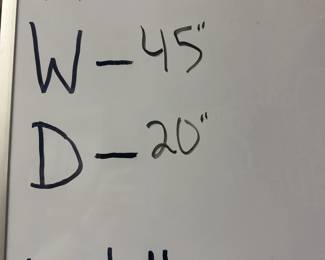 W - 45"
D - 20"